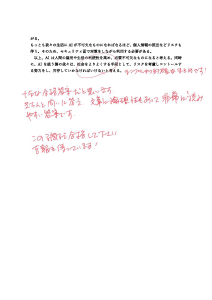 がる。
もっとも我々の生活に AI が不可欠なものになればなるほど、個人情報の流出などリスクも
伴う。そのため、セキュリティ面で対策をしながら利用する必要がある。
以上、AI は人間の雇用や生活の利便性を高め、必要不可欠なものになると考える。同時
に、AI を扱う側の私たちは、社会をよりよくする手段として、リスクを考慮しコントロールす
る努力をし、共存していかなければいけないと考える。
十分な合格答案だと思います
きちんと問いに答え 文章に論理性もあって 非常に読み
やすい答案です
この調子で合格して下さい
吉報を待っています!